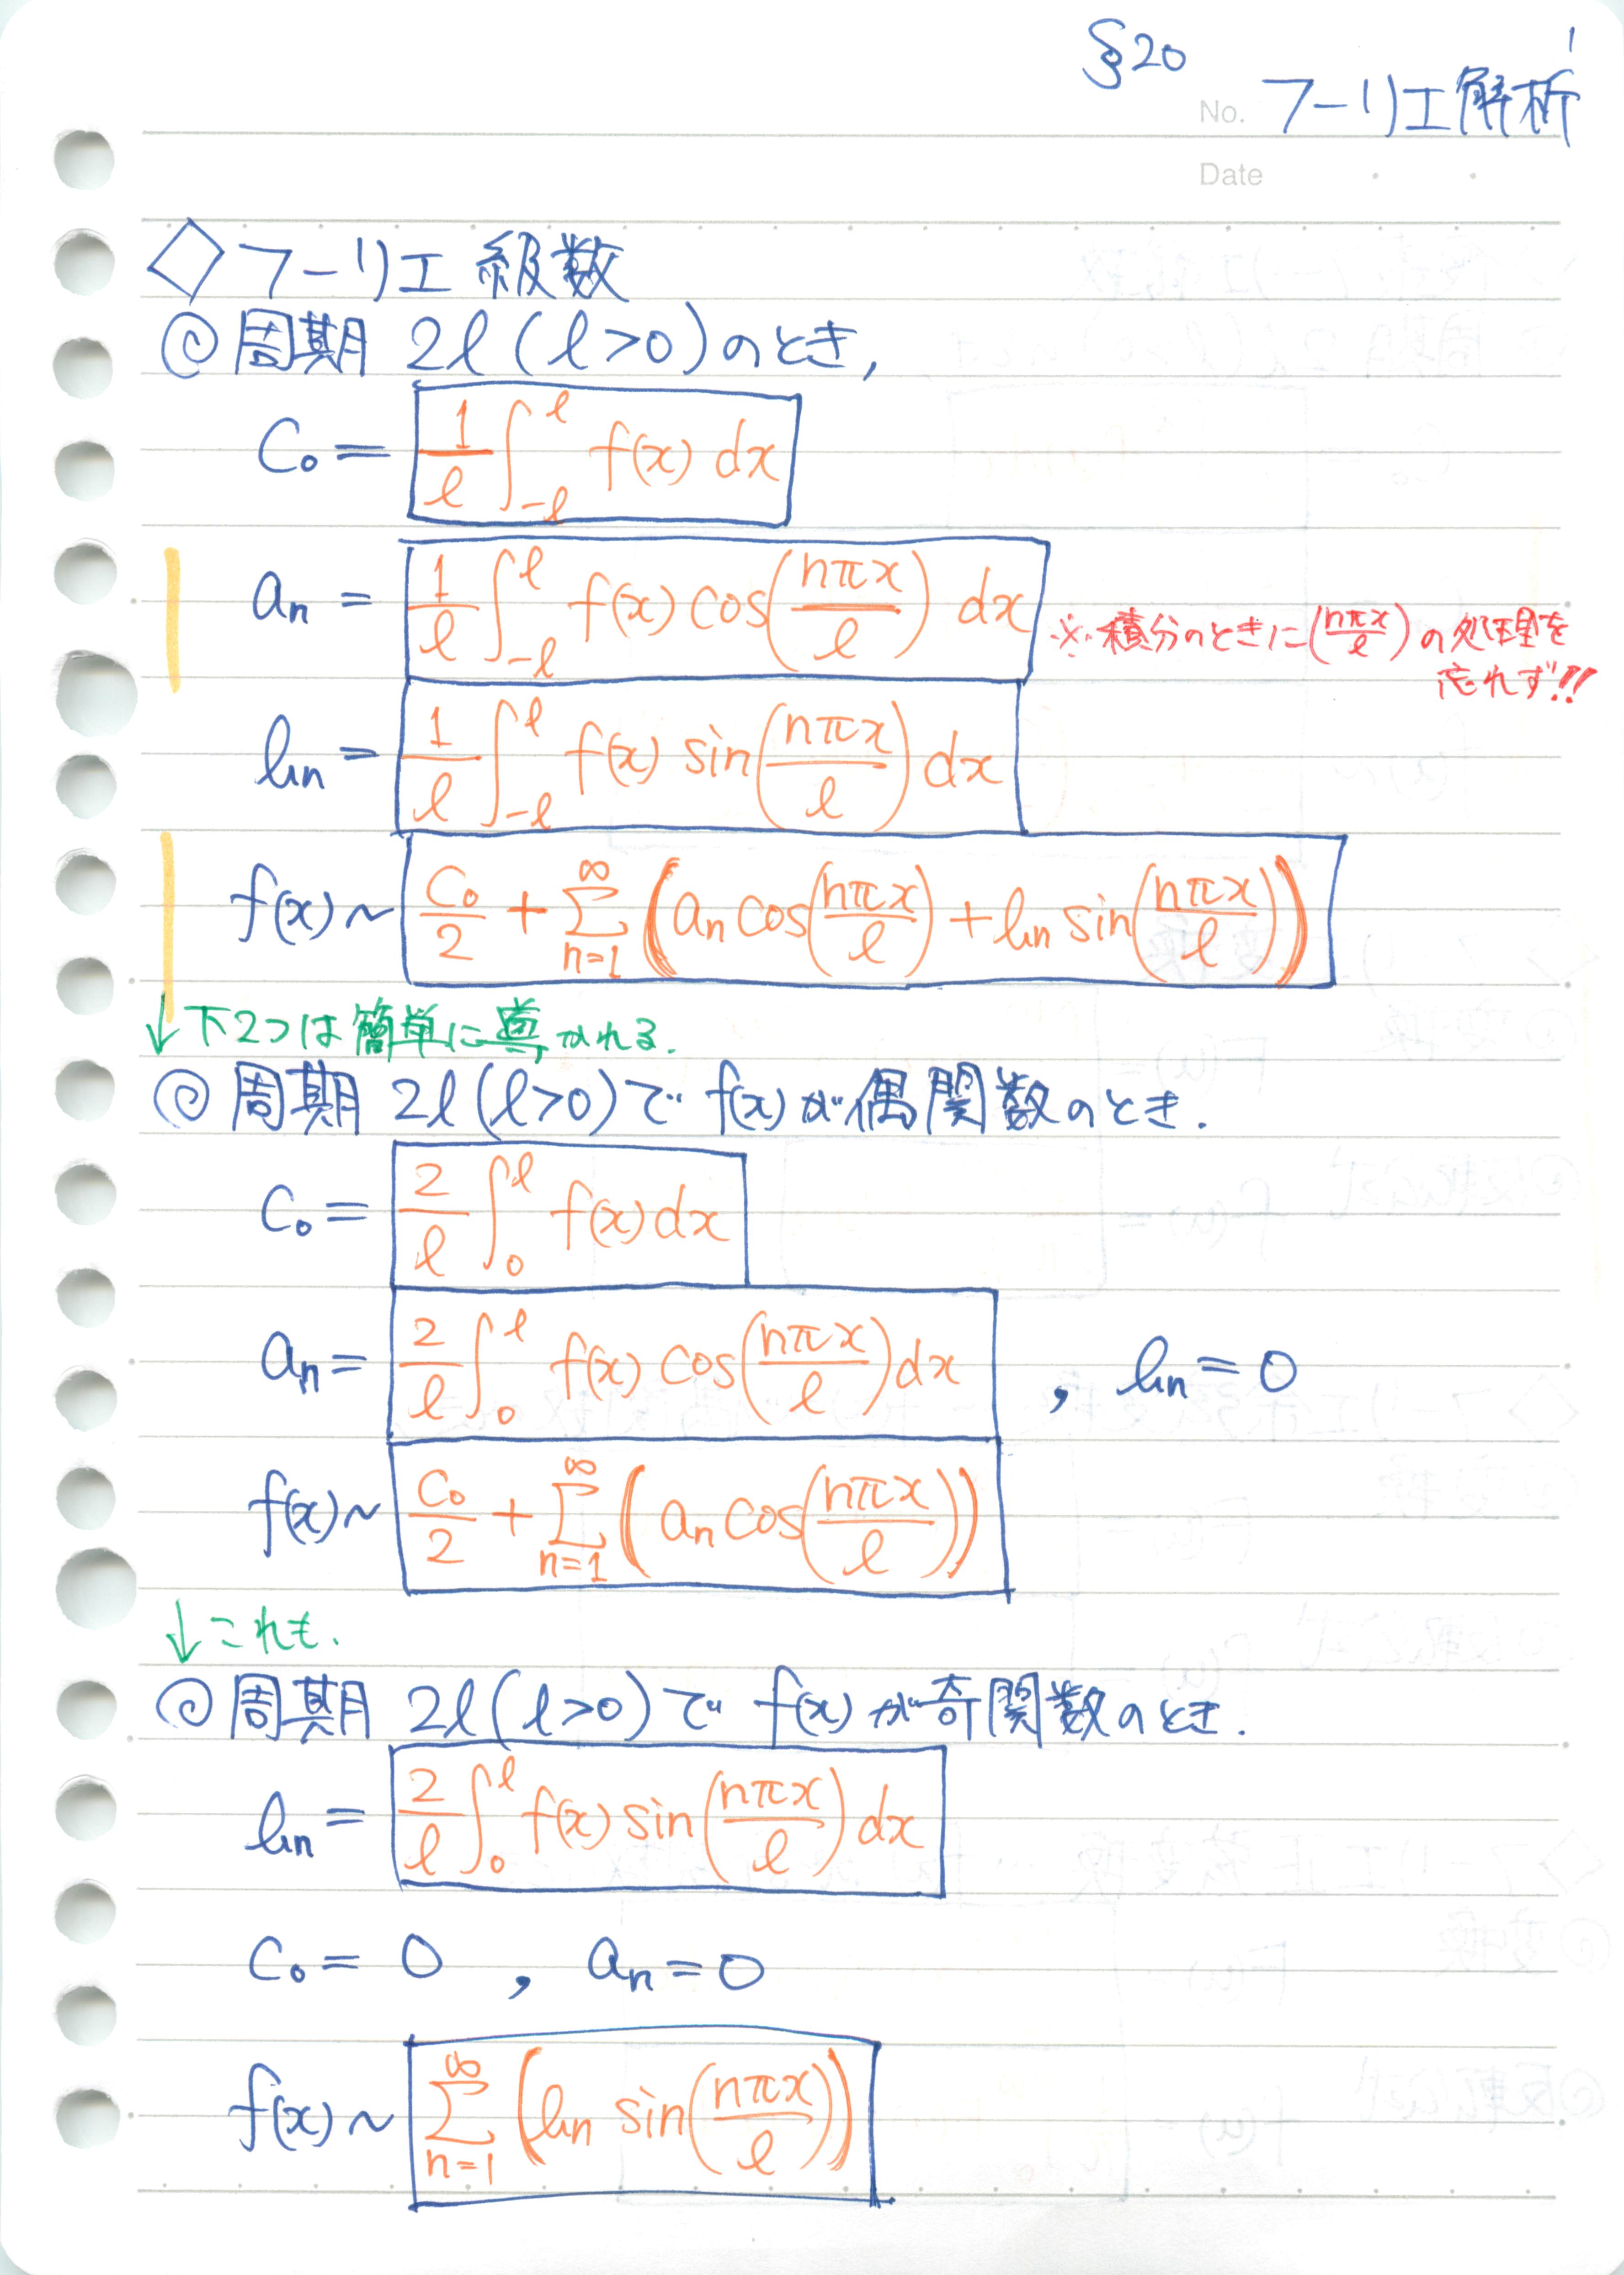 §20
1
No. フーリエ解析
Date
◇フーリエ級数
◎周期 2ℓ (ℓ>0)のとき,
C₀ = 1/ℓ ∫_{-ℓ}^{ℓ} f(x) dx
aₙ = 1/ℓ ∫_{-ℓ}^{ℓ} f(x) cos(nπx/ℓ) dx
※積分のときに(nπx/ℓ)の処理を
忘れず!!
bₙ = 1/ℓ ∫_{-ℓ}^{ℓ} f(x) sin(nπx/ℓ) dx
f(x) ~ C₀/2 + Σ_{n=1}^{∞} (aₙ cos(nπx/ℓ) + bₙ sin(nπx/ℓ))
↓下2つは簡単に導かれる.
◎周期 2ℓ (ℓ>0)で f(x)が偶関数のとき.
C₀ = 2/ℓ ∫_{0}^{ℓ} f(x) dx
aₙ = 2/ℓ ∫_{0}^{ℓ} f(x) cos(nπx/ℓ) dx , bₙ = 0
f(x) ~ C₀/2 + Σ_{n=1}^{∞} (aₙ cos(nπx/ℓ))
↓これも.
◎周期 2ℓ (ℓ>0)で f(x)が奇関数のとき.
bₙ = 2/ℓ ∫_{0}^{ℓ} f(x) sin(nπx/ℓ) dx
C₀ = 0 , aₙ = 0
f(x) ~ Σ_{n=1}^{∞} (bₙ sin(nπx/ℓ))